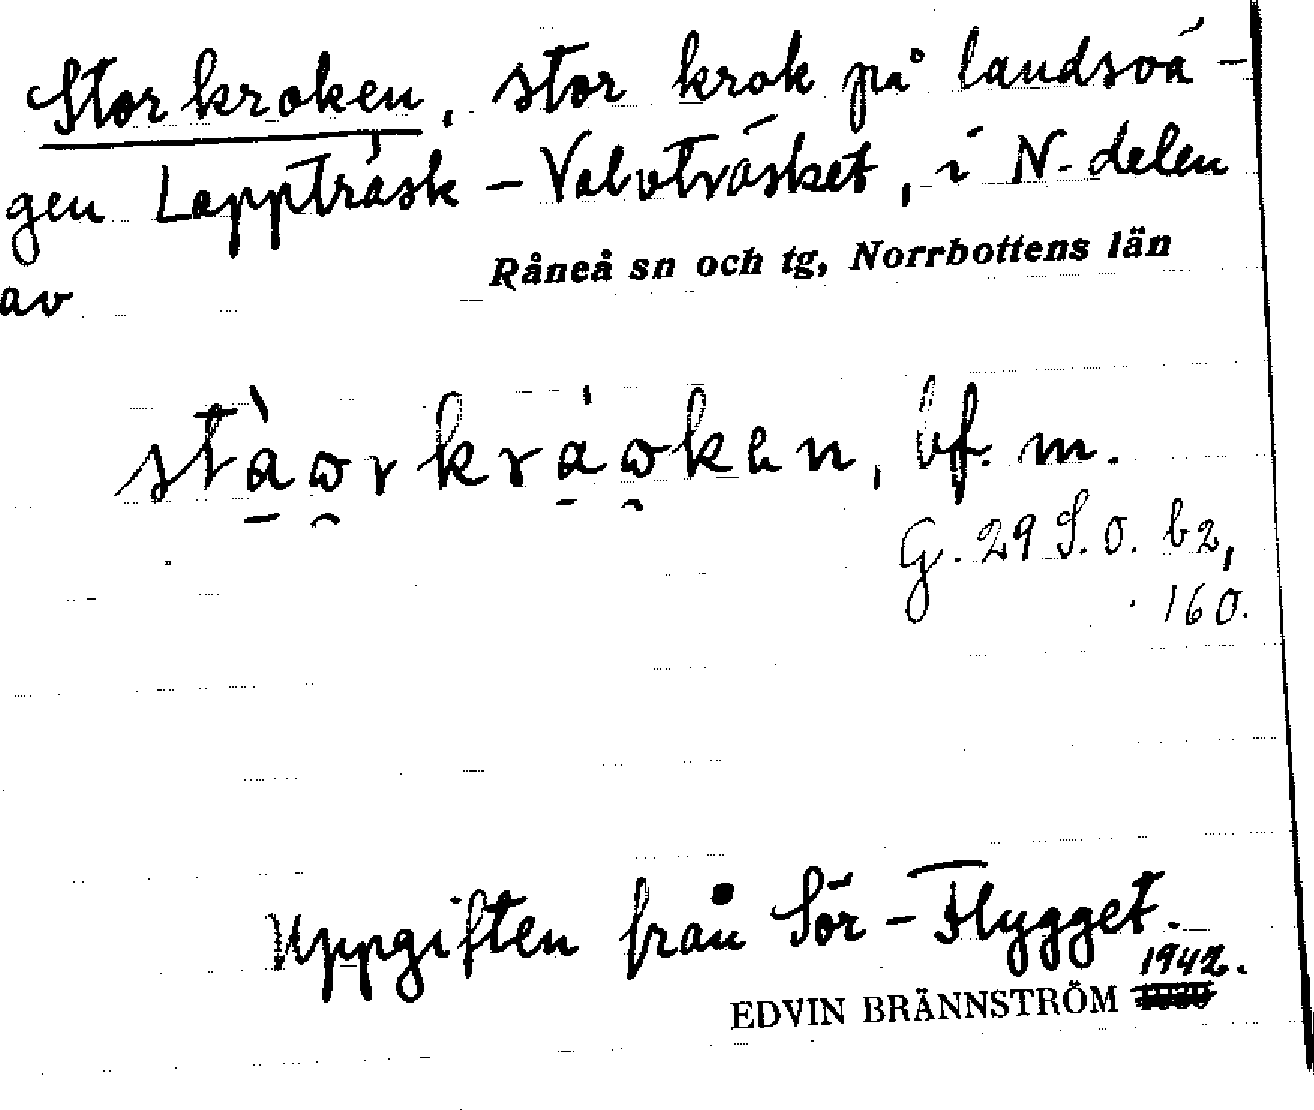 Storkroken, stor krok på landsvä-
gen Lappträsk - Valvträsket, i N. delen
av Råneå sn och tg, Norrbottens län
stàwrkràwken, bf. m.
G. 29 S. O. b2,
160.
Uppgiften från Sör-Flygget.
1942.
EDVIN BRÄNNSTRÖM